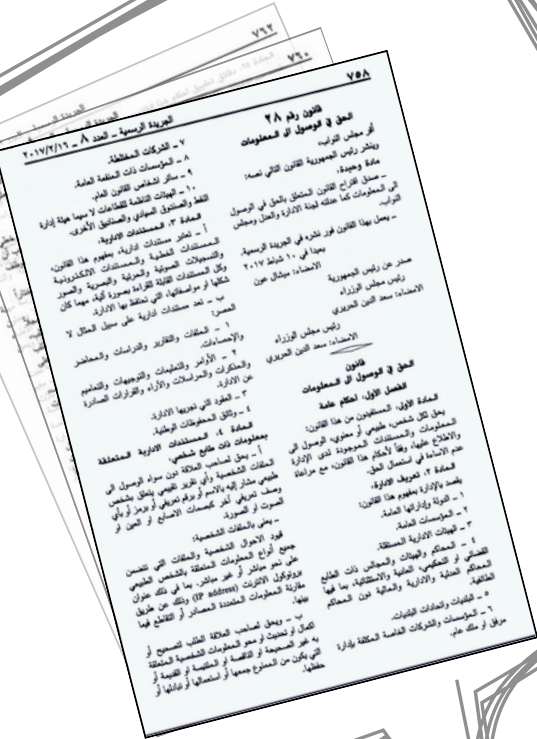 ٧٦٢
٧٦٠
٧٥٨
الجريدة الرسمية – العدد ٨ – ٢٠١٧/٢/١٦
قانون رقم ٢٨
الحق في الوصول الى المعلومات
أقر مجلس النواب،
وينشر رئيس الجمهورية القانون التالي نصه:
مادة وحيدة:
– صدق اقتراح القانون المتعلق بالحق في الوصول
الى المعلومات كما عدلته لجنة الادارة والعدل ومجلس
النواب.
– يعمل بهذا القانون فور نشره في الجريدة الرسمية.
بعبدا في ١٠ شباط ٢٠١٧
الامضاء: ميشال عون
صدر عن رئيس الجمهورية
رئيس مجلس الوزراء
الامضاء: سعد الدين الحريري
رئيس مجلس الوزراء
الامضاء: سعد الدين الحريري
قانون
الحق في الوصول الى المعلومات
الفصل الاول: احكام عامة
المادة الاولى: المستفيدون من هذا القانون:
يحق لكل شخص، طبيعي أو معنوي، الوصول الى
المعلومات والمستندات الموجودة لدى الإدارة
والاطلاع عليها، وفقاً لأحكام هذا القانون، مع مراعاة
عدم الاساءة في استعمال الحق.
المادة ٢: تعريف الادارة:
يقصد بالإدارة بمفهوم هذا القانون:
١ – الدولة وإداراتها العامة.
٢ – المؤسسات العامة.
٣ – الهيئات الادارية المستقلة.
٤ – المحاكم والهيئات والمجالس ذات الطابع
القضائي او التحكيمي، العادية والاستثنائية، بما فيها
المحاكم العدلية والادارية والمالية دون المحاكم
الطائفية.
٥ – البلديات واتحادات البلديات.
٦ – المؤسسات والشركات الخاصة المكلفة بإدارة
مرفق او ملك عام.
٧ – الشركات المختلطة.
٨ – المؤسسات ذات المنفعة العامة.
٩ – سائر اشخاص القانون العام.
١٠ – الهيئات الناظمة للقطاعات لا سيما هيئة إدارة
النفط والصندوق السيادي والصناديق الأخرى.
المادة ٣: المستندات الادارية:
أ – تعتبر مستندات ادارية، بمفهوم هذا القانون،
المستندات الخطية والمستندات الالكترونية
والتسجيلات الصوتية والمرئية والبصرية والصور
وكل المستندات القابلة للقراءة بصورة آلية، مهما كان
شكلها او مواصفاتها، التي تحتفظ بها الادارة.
ب – تعد مستندات ادارية على سبيل المثال لا
الحصر:
١ – الملفات والتقارير والدراسات والمحاضر
والإحصاءات.
٢ – الأوامر والتعليمات والتوجيهات والتعاميم
والمذكرات والمراسلات والآراء والقرارات الصادرة
عن الادارة.
٣ – العقود التي تجريها الادارة.
٤ – وثائق المحفوظات الوطنية.
المادة ٤: المستندات الادارية المتعلقة
بمعلومات ذات طابع شخصي:
أ – يحق لصاحب العلاقة دون سواه الوصول الى
الملفات الشخصية وأي تقرير تقييمي يتعلق بشخص
طبيعي مشار إليه بالاسم أو برقم تعريفي أو برمز أو بأي
وصف تعريفي آخر كبصمات الاصابع او العين او
الصوت او الصورة.
– يعنى بالملفات الشخصية:
قيود الاحوال الشخصية والملفات التي تتضمن
جميع أنواع المعلومات المتعلقة بالشخص الطبيعي
على نحو مباشر أو غير مباشر، بما في ذلك عنوان
بروتوكول الانترنت (IP address) وذلك عن طريق
مقارنة المعلومات المتعددة المصادر أو التقاطع فيما
بينها.
ب – ويحق لصاحب العلاقة الطلب لتصحيح أو
اكمال او تحديث او محو المعلومات الشخصية المتعلقة
به غير الصحيحة او الناقصة او الملتبسة او القديمة أو
التي يكون من الممنوع جمعها أو استعمالها أو تبادلها أو
حفظها.